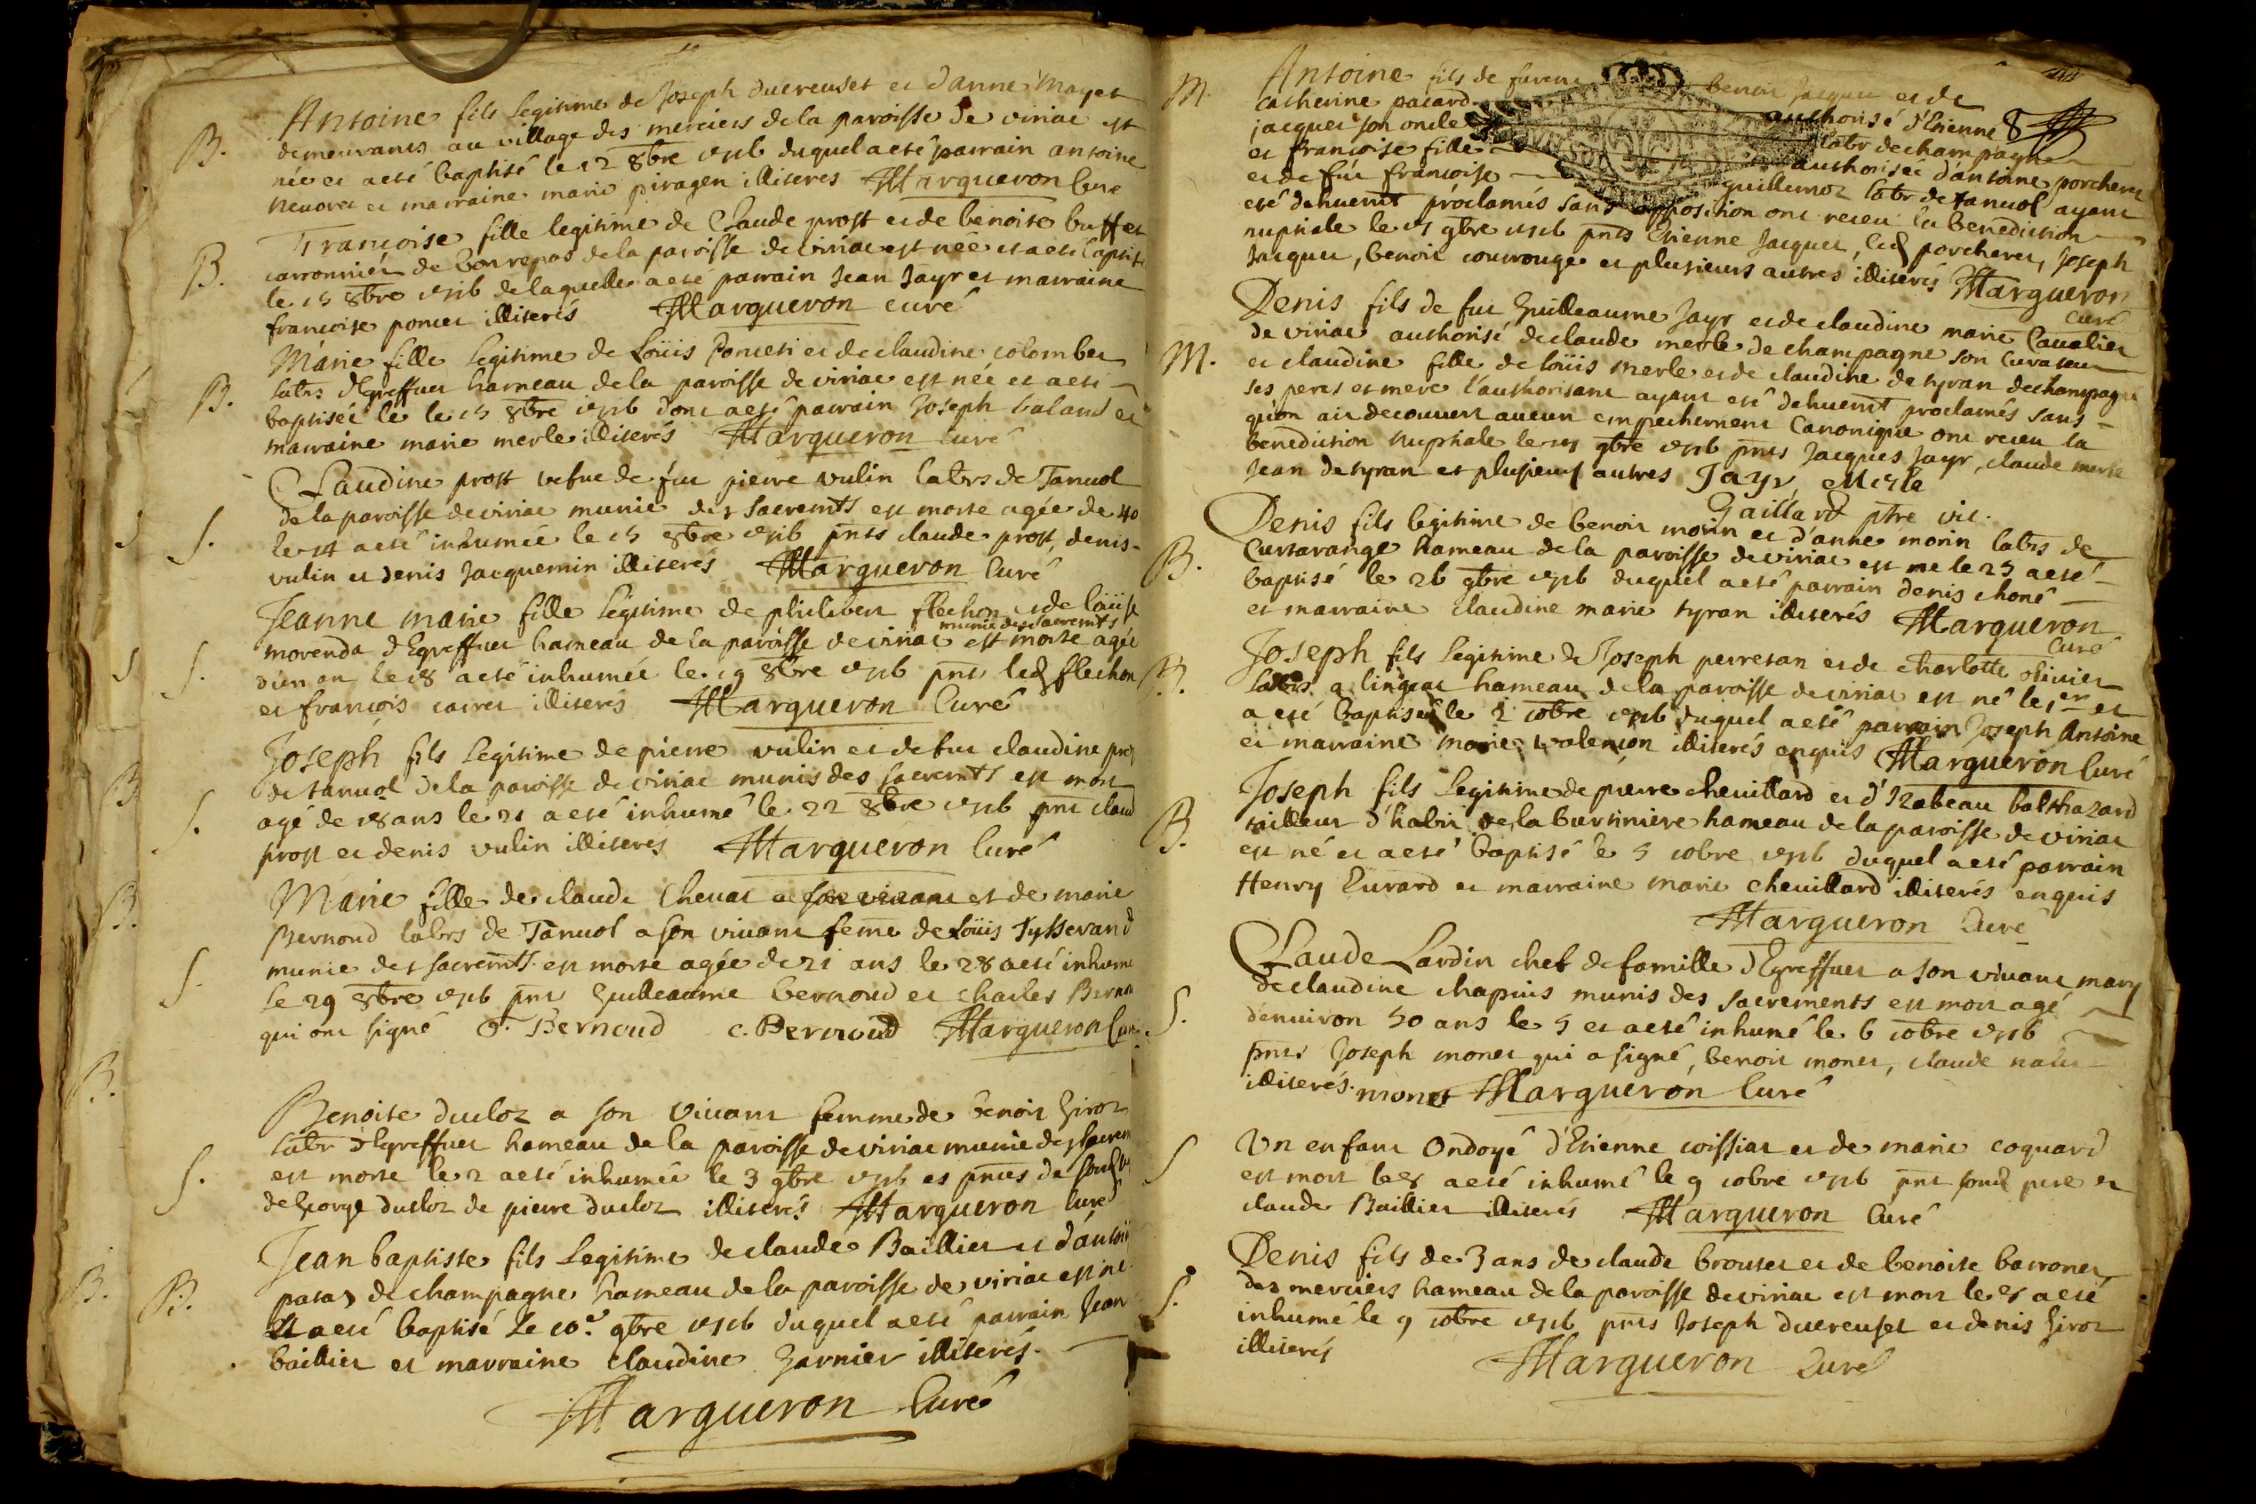 B. Antoine fils legitime de Joseph ducreuset et d'anne mayet
demeurants au village des merciers de la paroisse de viriac est
née et a eté baptisé le 12 8bre 1716 duquel a eté parrain antoine
et marraine marie piragen illiteres Margueron Curé
B. Francoise fille legitime de Claude prost et de benoite buffet
carronnier de bonrepos de la paroisse de viriac est née et a eté baptisé
le 15 8bre 1716 de laquelle a eté parrain Jean Jayr et marraine
francoise poncet illiterés Margueron curé
B. Marie fille legitime de Loüis Poncet et de claudine colomber
labrs d'Egreffuer hameau de la paroisse de viriac est née et a eté
baptisée le le 15 8bre 1716 dont a eté parrain Joseph baland et
marraine marie merle illiterés Margueron curé
Claudine prost vefue de feu pierre vulin labrs de Tanuol
S. de la paroisse de viriac munie des sacremts est morte agée de 40
le 14 a eté inhumée le 15 8bre 1716 pnts claude prost, denis
vulin et denis Jacquemin illiterés Margueron Curé
Jeanne marie fille legitime de philibert flechon et de loüise
munie des sacremts
morenda d'Egreffuer hameau de la paroisse de viriac est morte agée
S. d'un an le 18 a eté inhumée le 19 8bre 1716 pnts led flechon
et francois carret illiterés Margueron Curé
Joseph fils legitime de pierre vulin et de feu claudine
de tanuol de la paroisse de viriac munis des sacremts est mort
S. agé de 18 ans le 21 a eté inhumé le 22 8bre 1716 pnt
prost et denis vulin illiterés Margueron Curé
Marie fille de claude Chenat et de marie
Bernoud labrs de Tanuol a son viuant femme de Loüis Tysserand
S. munie des sacremts est morte agée de 21 ans le 28 a eté
le 29 8bre 1716 pnt Guilleaume bernoud et charles
qui ont signé G. Bernoud c. Bernoud Margueron
Benoite ducloz a son viuant femme de benoit Giroz
labr d'Egreffuer hameau de la paroisse de viriac munie des
S. est morte le 2 a eté inhumée le 3 9bre 1716 es pnces de
de George ducloz de pierre ducloz illiterés Margueron curé
Jean baptiste fils legitime de claude Baillier et
de champagne hameau de la paroisse de viriac est né
B. et a eté baptisé le 10e 9bre 1716 duquel a eté parrain Jean
baillier et marraine claudine Garnier illiterés.
Margueron Curé
M. Antoine fils de benoit Jacquet et de
catherine pacard authorisé d'Etienne 8
jacquet son oncle labr de champagne
et francoise fille authorisée d'antoine porcheret
et de füe francoise guillemoz labr de tanuol ayant
eté dehuemt proclamés sans opposition ont receu la benediction
nuptiale le 15 9bre 1716 pnts Etienne Jacquet, led porcheret, Joseph
Jacquet, benoit courrouge et plusieurs autres illiterés Margueron
Curé
Denis fils de feu Guilleaume Jayr et de claudine marie Caualier
M. de viriac authorisé de claude merle de champagne son curateur
et claudine fille de loüis merle et de claudine de tyran de champagne
ses pere et mere l'authorisant ayant eté dehuemt proclamés sans
qu'on ait decouuert aucun empechement Canonique ont receu la
benediction nuptiale le 9bre 1716 pnts Jacques Jayr, claude merle
Jean de tyran et plusieurs autres Jayr Merle
Gaillard ptre vic.
Denis fils legitime de benoit morin et d'anne morin labrs de
B. Curtarange hameau de la paroisse de viriac est né le 25 a eté
baptisé le 26 9bre 1716 duquel a eté parrain denis choné
et marraine claudine marie tyran illiterés Margueron
Curé
Joseph fils legitime de Joseph perretan et de charlotte oliuier
B. labrs a lingeat hameau de la paroisse de viriac est né le 1er et
a eté baptisé le 2 10bre 1716 duquel a eté parrain Joseph Antoine
et marraine marie valencon illiterés enquis Margueron Curé
Joseph fils legitime de pierre cheuillard et d'Izabeau balthazard
B. tailleur d'habit de la burtiniere hameau de la paroisse de viriac
est né et a eté baptisé le 5 10bre 1716 duquel a eté parrain
Henry Eurard et marraine marie cheuillard illiterés enquis
Margueron Curé
Claude Lardin chef de famille d'Egreffuer a son viuant mary
S. de claudine chapuis munis des sacrements est mort agé
d'enuiron 50 ans le 5 et a eté inhumé le 6 10bre 1716
pnts Joseph monet qui a signé, benoit monet, claude
illiterés. monet Margueron Curé
S Un enfant Ondoyé d'Etienne coissiat et de marie coquard
est mort le 8 a eté inhumé le 9 10bre 1716 pnt sond pere et
claude Baillier illiterés Margueron Curé
Denis fils de 3 ans de claude brouset et de benoite barronet
S. des merciers hameau de la paroisse de viriac est mort le 8 a eté
inhumé le 9 10bre 1716 pnts Joseph ducreuset et denis Giroz
illiterés Margueron Curé